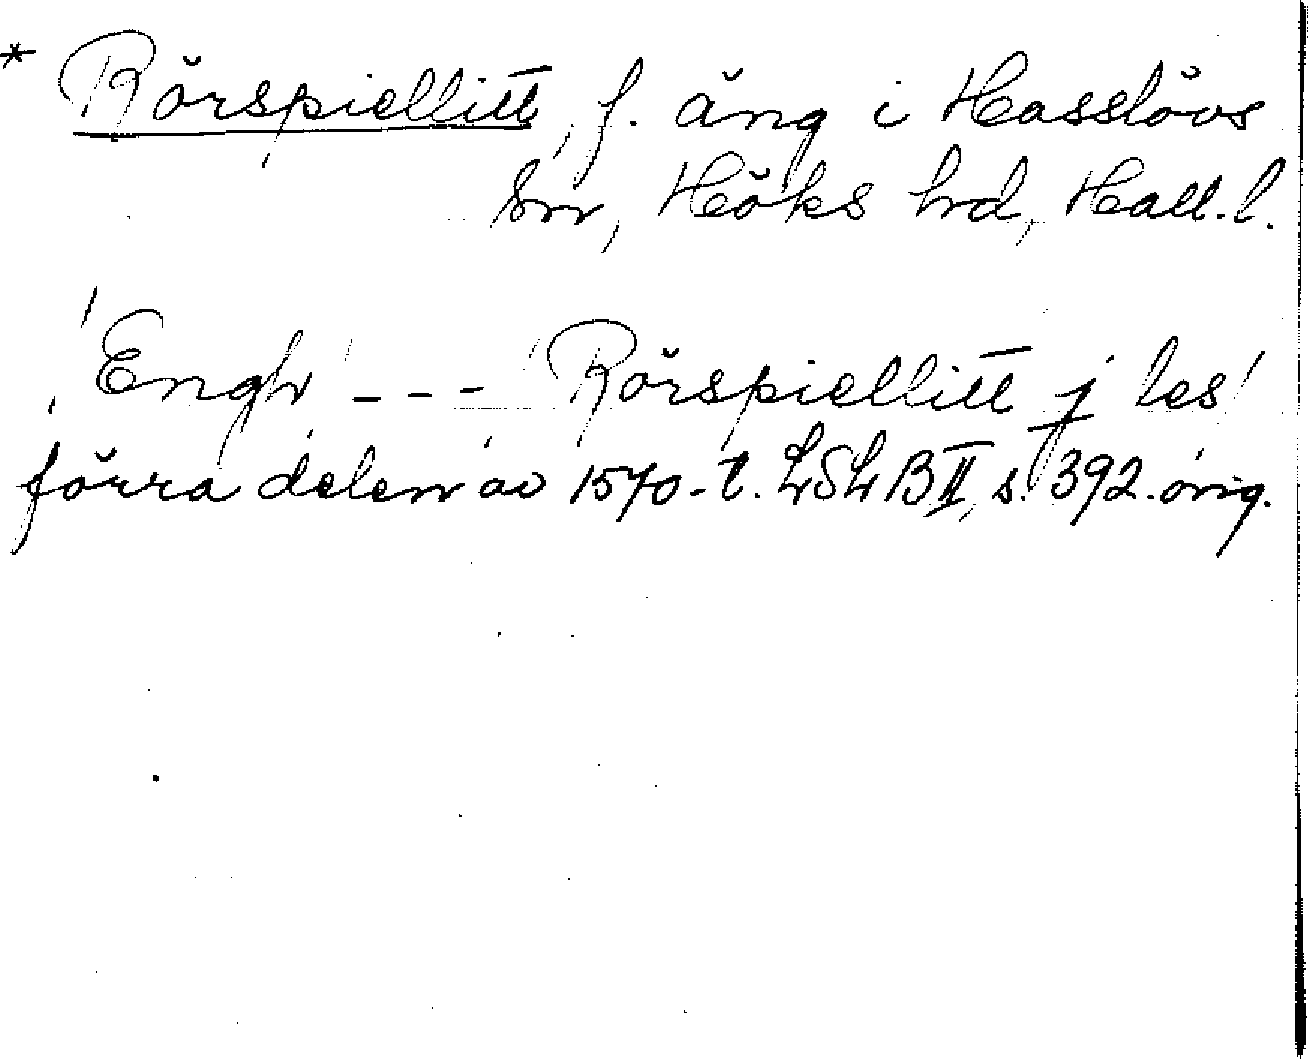 * Rörspiellitt, f. äng i Hasslövs
sn, Höks hd, Hall. l.
'Engh' - - - 'Rörspiellitt j les'
förra delen av 1570-t. LSLB II, s. 392. orig.